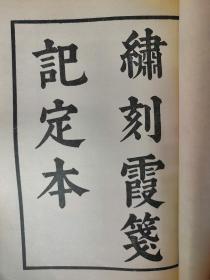 繡刻霞箋
記定本